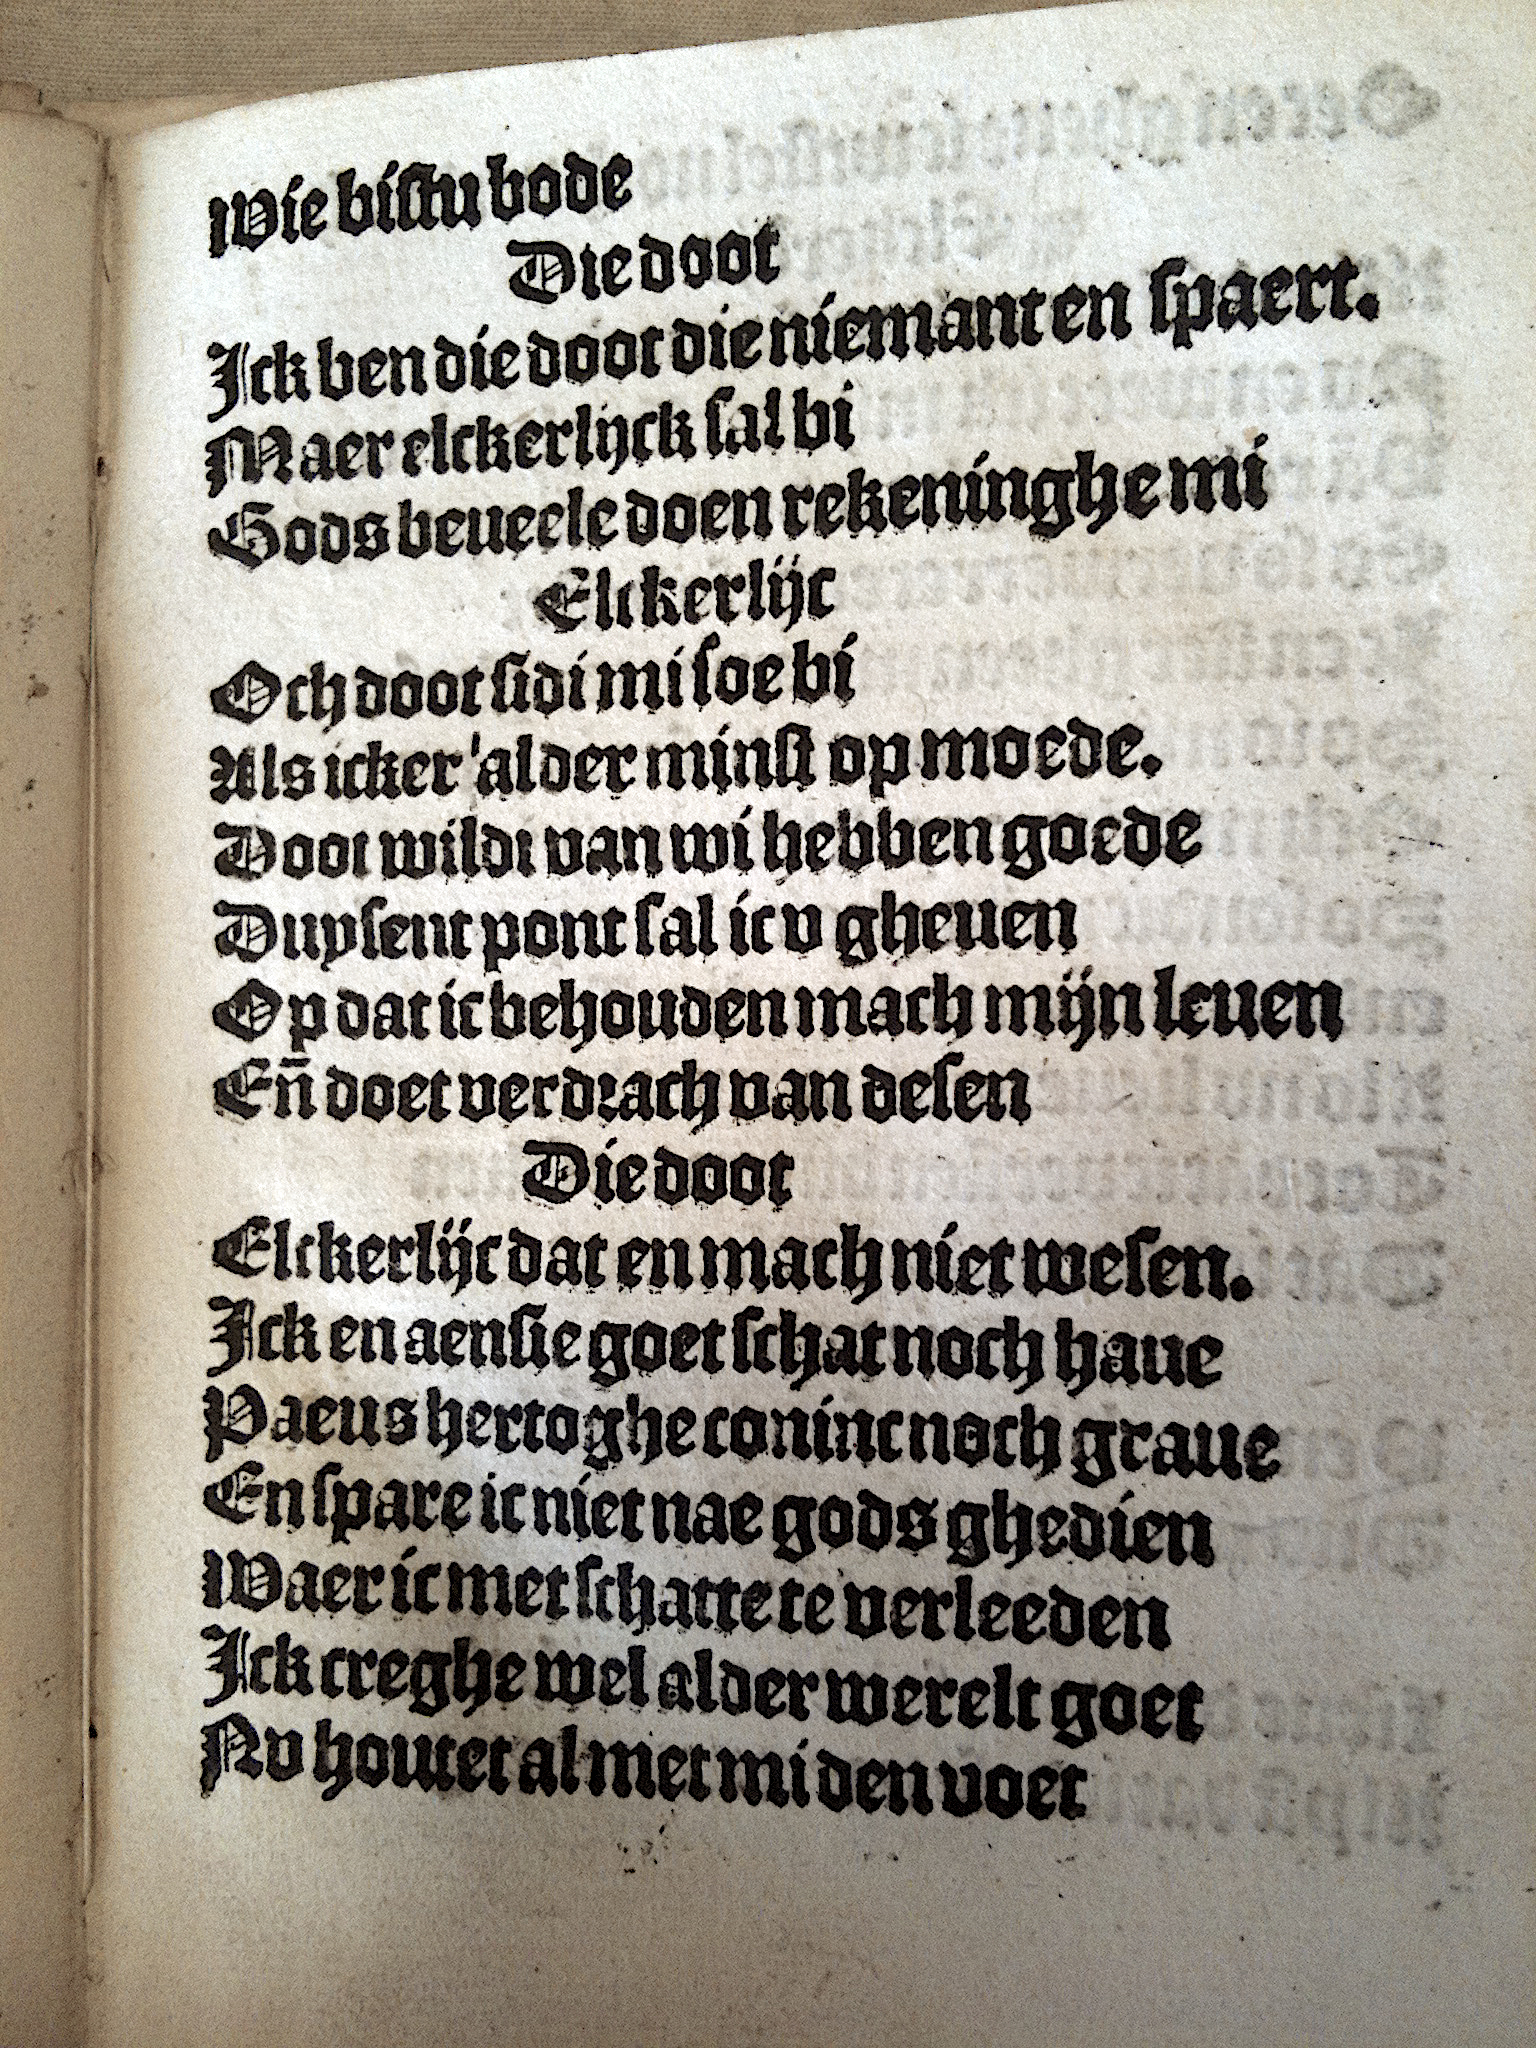 Wie bistu bode
Die doot
Ick ben die doot die niemant en spaert.
Maer elckerlijck sal bi
Gods beueele doen rekeninghe mi
Elckerlijc
Och doot sidi mi soe bi
Als icker alder minst op moede.
Doot wildt van wi hebben goede
Duysent pont sal ic v gheuen
Op dat ic behouden mach mijn leuen
Eñ doet verdrach van desen
Die doot
Elckerlijc dat en mach niet wesen.
Ick en aensie goet schat noch haue
Paeus hertoghe coninc noch graue
En spare ic niet nae gods ghedien
Waer ic met schatte te verleeden
Ick creghe wel alder werelt goet
Nv houtet al met mi den voet